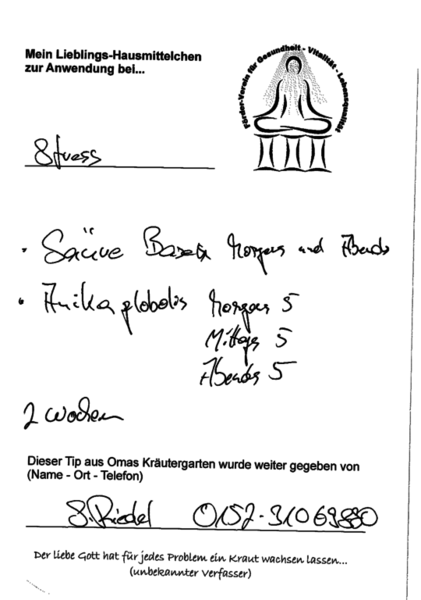 Mein Lieblings-Hausmittelchen
zur Anwendung bei...
Förder-Verein für Gesundheit - Vitalität - Lebensqualität
Stress
• Säüre Basen Morgens und Abends
• Arnika globolis Morgens 5
Mittags 5
Abends 5
2 Wochen
Dieser Tip aus Omas Kräutergarten wurde weiter gegeben von
(Name - Ort - Telefon)
S. Riedel 0152-31069880
Der liebe Gott hat für jedes Problem ein Kraut wachsen lassen...
(unbekannter Verfasser)